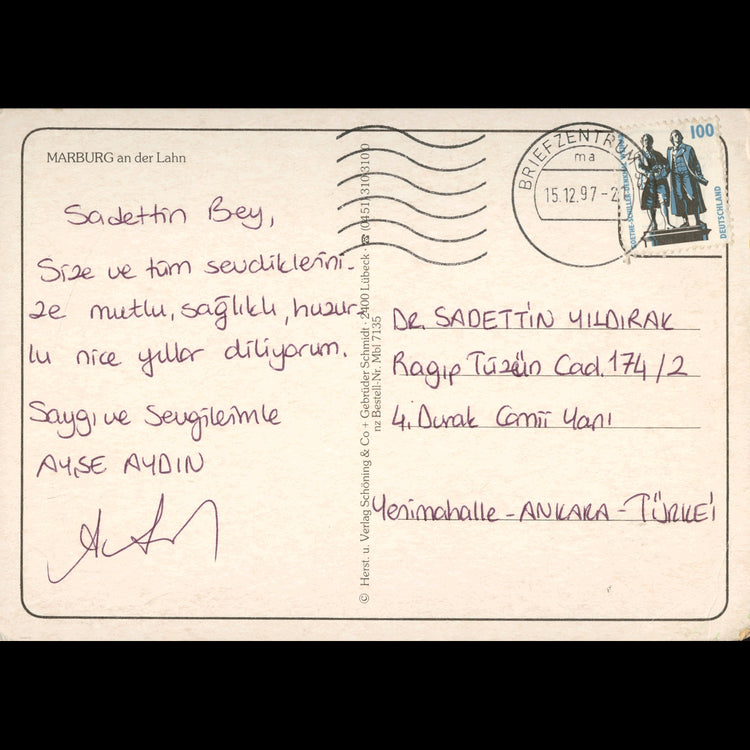 MARBURG an der Lahn
Sadettin Bey,
Size ve tüm sevdiklerini-
ze mutlu, sağlıklı, huzur-
lu nice yıllar diliyorum.
Saygı ve Sevgilerimle
AYŞE AYDIN
© Herst. u. Verlag Schöning & Co + Gebrüder Schmidt · 2400 Lübeck · ☎ (0451) 310310
nz Bestell-Nr. Mbl 7135
BRIEFZENTRUM
ma
15.12.97-2
100
DEUTSCHLAND
Dr. SADETTİN YILDIRAK
Ragıp Tüzün Cad. 174/2
4. Durak Camii Yanı
Yenimahalle - ANKARA - TÜRKEİ